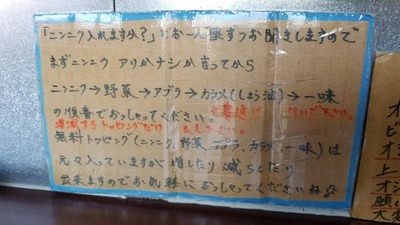 「ニンニク入れますか?」とお一人様ずつお聞きしますので
まずニンニク アリかナシか言ってから
ニンニク→野菜→アブラ→カラメ(しょう油)→一味
の順番でおっしゃってください。
増減するトッピングだけ
無料トッピング(ニンニク、野菜、アブラ、カラメ、一味)は
元々入っていますが増したり減らしたり
出来ますのでお気軽におっしゃってくださいね
オ
ビ
オ
上
オシ
願い
大変